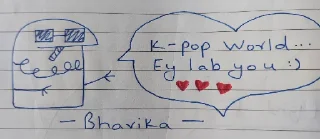 K-pop World...
Ey lab you :)
- Bharika -